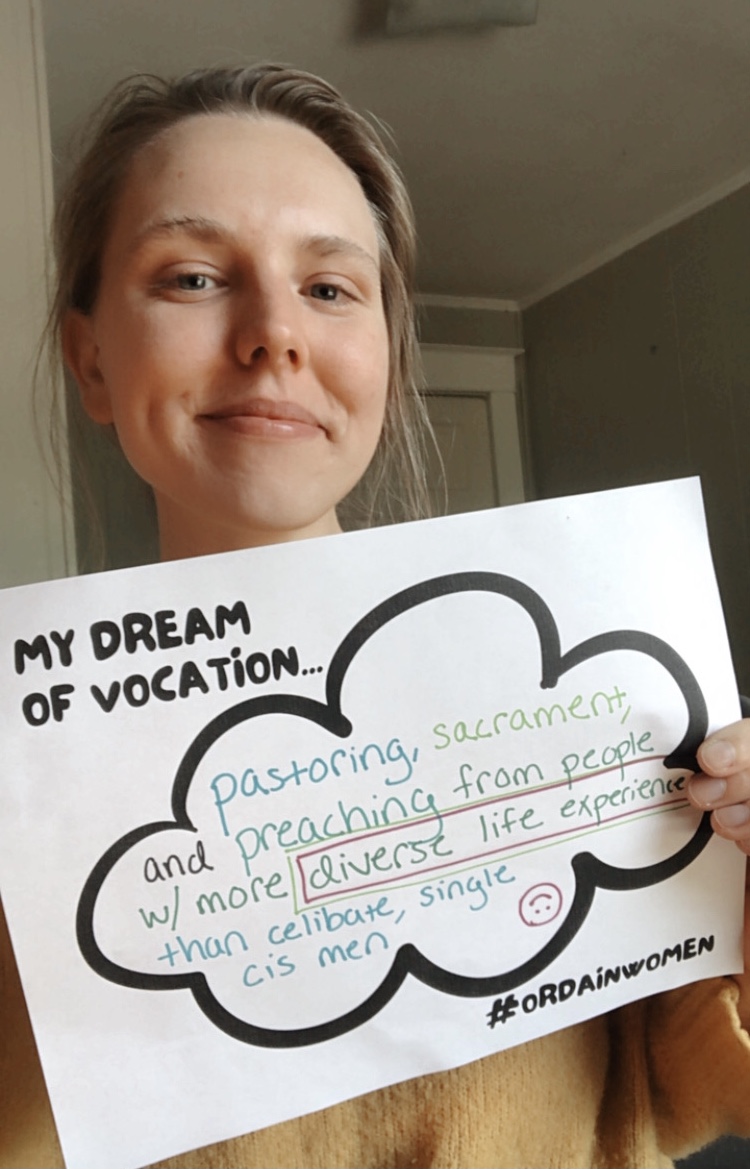 MY DREAM
OF VOCATION...
pastoring, sacrament,
and preaching from people
w/ more diverse life experience
than celibate, single
cis men
#ORDAINWOMEN